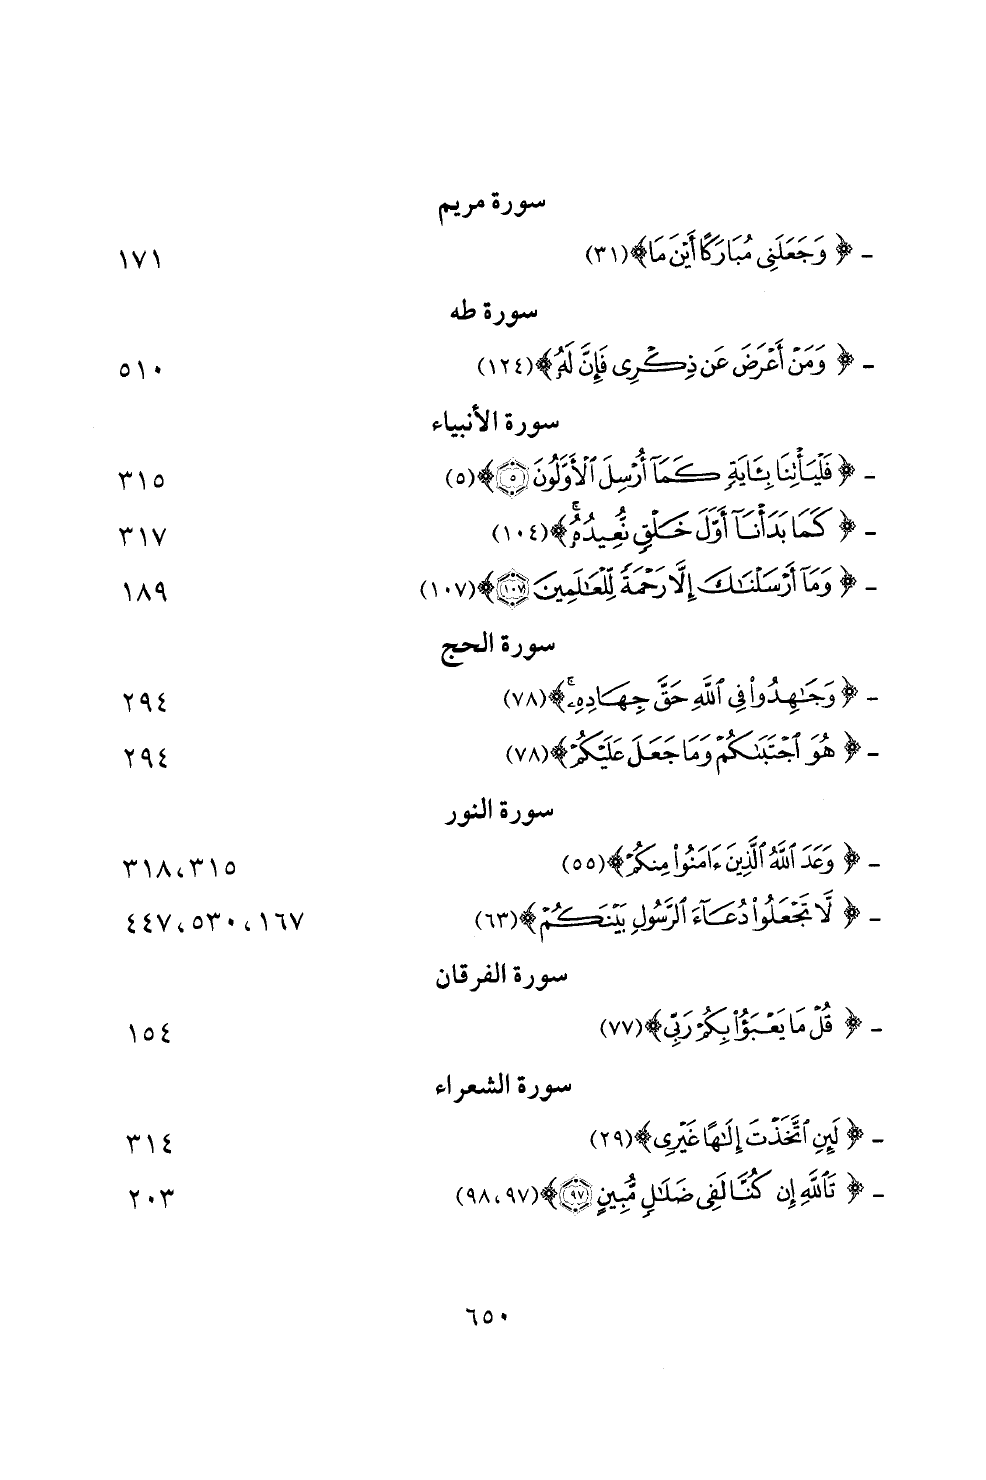 سورة مريم
- ﴿ وَجَعَلَنِى مُبَارَكًا أَيْنَ مَا﴾(٣١) ١٧١
سورة طه
- ﴿ وَمَنْ أَعْرَضَ عَن ذِكْرِى فَإِنَّ لَهُۥ﴾(١٢٤) ٥١٠
سورة الأنبياء
- ﴿ فَلْيَأْتِنَا بِـَٔايَةٍ كَمَآ أُرْسِلَ ٱلْأَوَّلُونَ ٥﴾(٥) ٣١٥
- ﴿ كَمَا بَدَأْنَآ أَوَّلَ خَلْقٍ نُّعِيدُهُۥۚ﴾(١٠٤) ٣١٧
- ﴿ وَمَآ أَرْسَلْنَٰكَ إِلَّا رَحْمَةً لِّلْعَٰلَمِينَ ١٠٧﴾(١٠٧) ١٨٩
سورة الحج
- ﴿ وَجَٰهِدُوا۟ فِى ٱللَّهِ حَقَّ جِهَادِهِۦۚ﴾(٧٨) ٢٩٤
- ﴿ هُوَ ٱجْتَبَىٰكُمْ وَمَا جَعَلَ عَلَيْكُمْ﴾(٧٨) ٢٩٤
سورة النور
- ﴿ وَعَدَ ٱللَّهُ ٱلَّذِينَ ءَامَنُوا۟ مِنكُمْ﴾(٥٥) ٣١٨،٣١٥
- ﴿ لَّا تَجْعَلُوا۟ دُعَآءَ ٱلرَّسُولِ بَيْنَكُمْ﴾(٦٣) ٤٤٧،٥٣٠،١٦٧
سورة الفرقان
- ﴿ قُلْ مَا يَعْبَؤُا۟ بِكُمْ رَبِّى﴾(٧٧) ١٥٤
سورة الشعراء
- ﴿ لَئِنِ ٱتَّخَذْتَ إِلَٰهًا غَيْرِى﴾(٢٩) ٣١٤
- ﴿ تَٱللَّهِ إِن كُنَّا لَفِى ضَلَٰلٍ مُّبِينٍ ٩٧﴾(٩٨،٩٧) ٢٠٣
٦٥٠